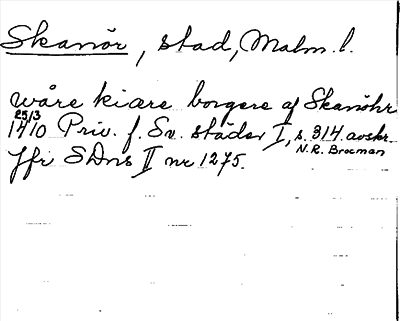 Skanör, stad, Malm. l.
wåre kiære borgere af Skanöhr
25/3
1410 Priv. f. Sv. städer I, s. 314 avskr.
N.R. Brocman
Jfr SDns II nr 1275.